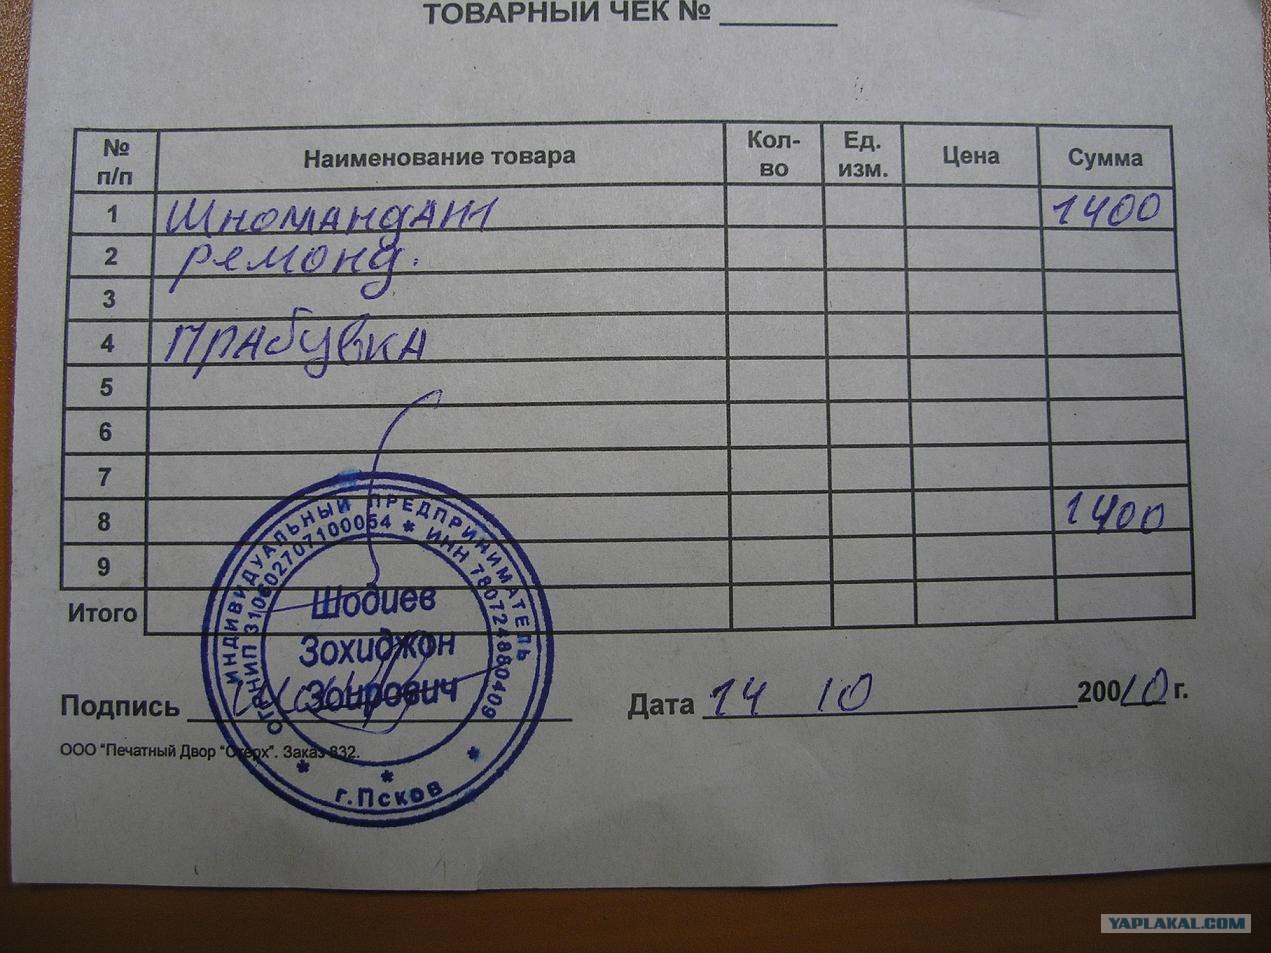 ТОВАРНЫЙ ЧЕК № ________
№ п/п Наименование товара Кол-во Ед. изм. Цена Сумма
1 Шномандаж 1400
2 ремонд.
3
4 прабувка
5
6
7
8 1400
9
Итого
ИНДИВИДУАЛЬНЫЙ ПРЕДПРИНИМАТЕЛЬ
ОГРНИП 310602707100054 * ИНН 780724880409
Шодиев
Зохиджон
Зоирович
* * *
г.Псков
Подпись Дата 14 10 20010 г.
ООО "Печатный Двор "Стерх". Заказ 832.
YAPLAKAL.COM